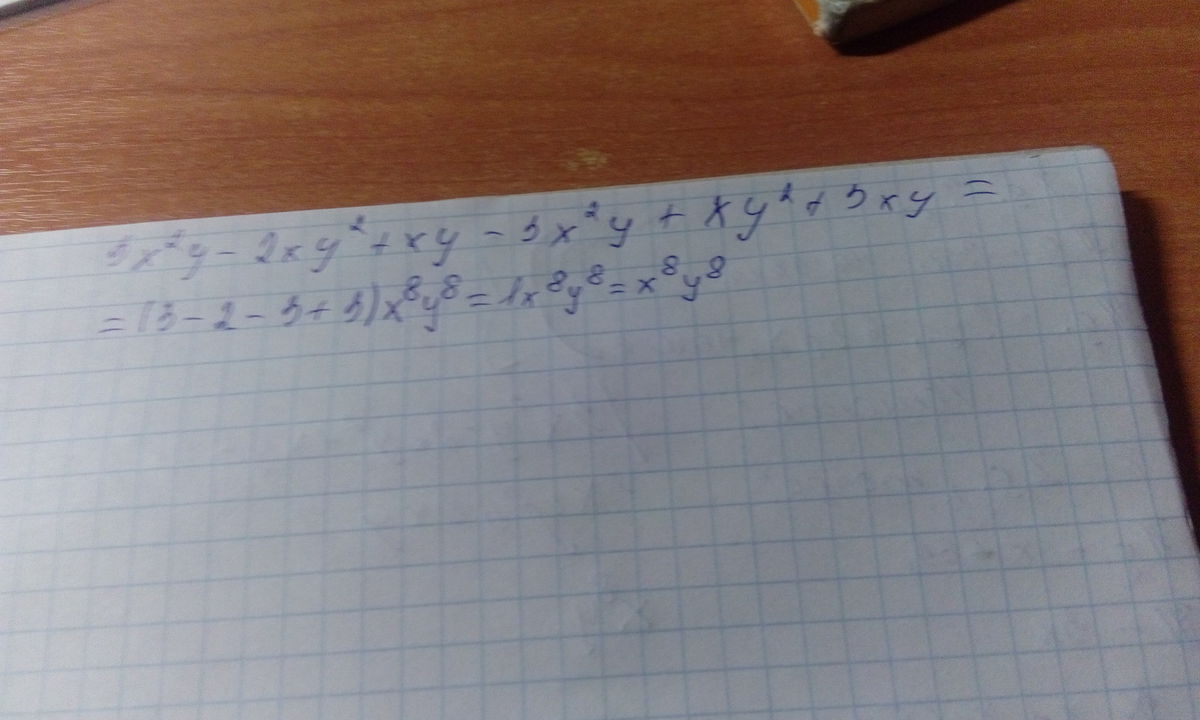 3x²y - 2xy² + xy - 3x²y + xy² + 3xy =
= (3 - 2 - 3 + 3)x⁸y⁸ = 1x⁸y⁸ = x⁸y⁸